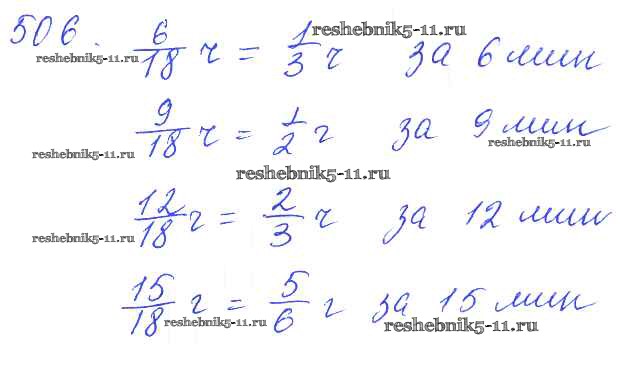 506. 6/18 ч = 1/3 ч за 6 мин
reshebnik5-11.ru reshebnik5-11.ru
9/18 ч = 1/2 г за 9 мин
reshebnik5-11.ru reshebnik5-11.ru
reshebnik5-11.ru
12/18 г = 2/3 ч за 12 мин
reshebnik5-11.ru
15/18 г = 5/6 г за 15 мин
reshebnik5-11.ru reshebnik5-11.ru